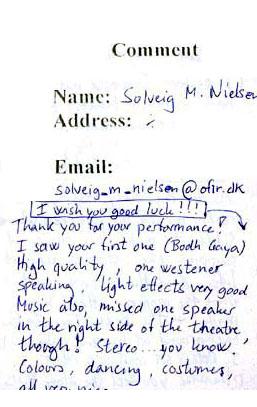 Comment
Name: Solveig M. Nielsen
Address: ⁒
Email:
solveig_m_nielsen@ofir.dk
I wish you good luck!!!
Thank you for your performance!
I saw your first one (Bodh Gaya)
High quality, one westener
speaking, light effects very good
Music also, missed one speaker
in the right side of the theatre
though! Stereo... you know.
Colours, dancing, costumes,
all very nice